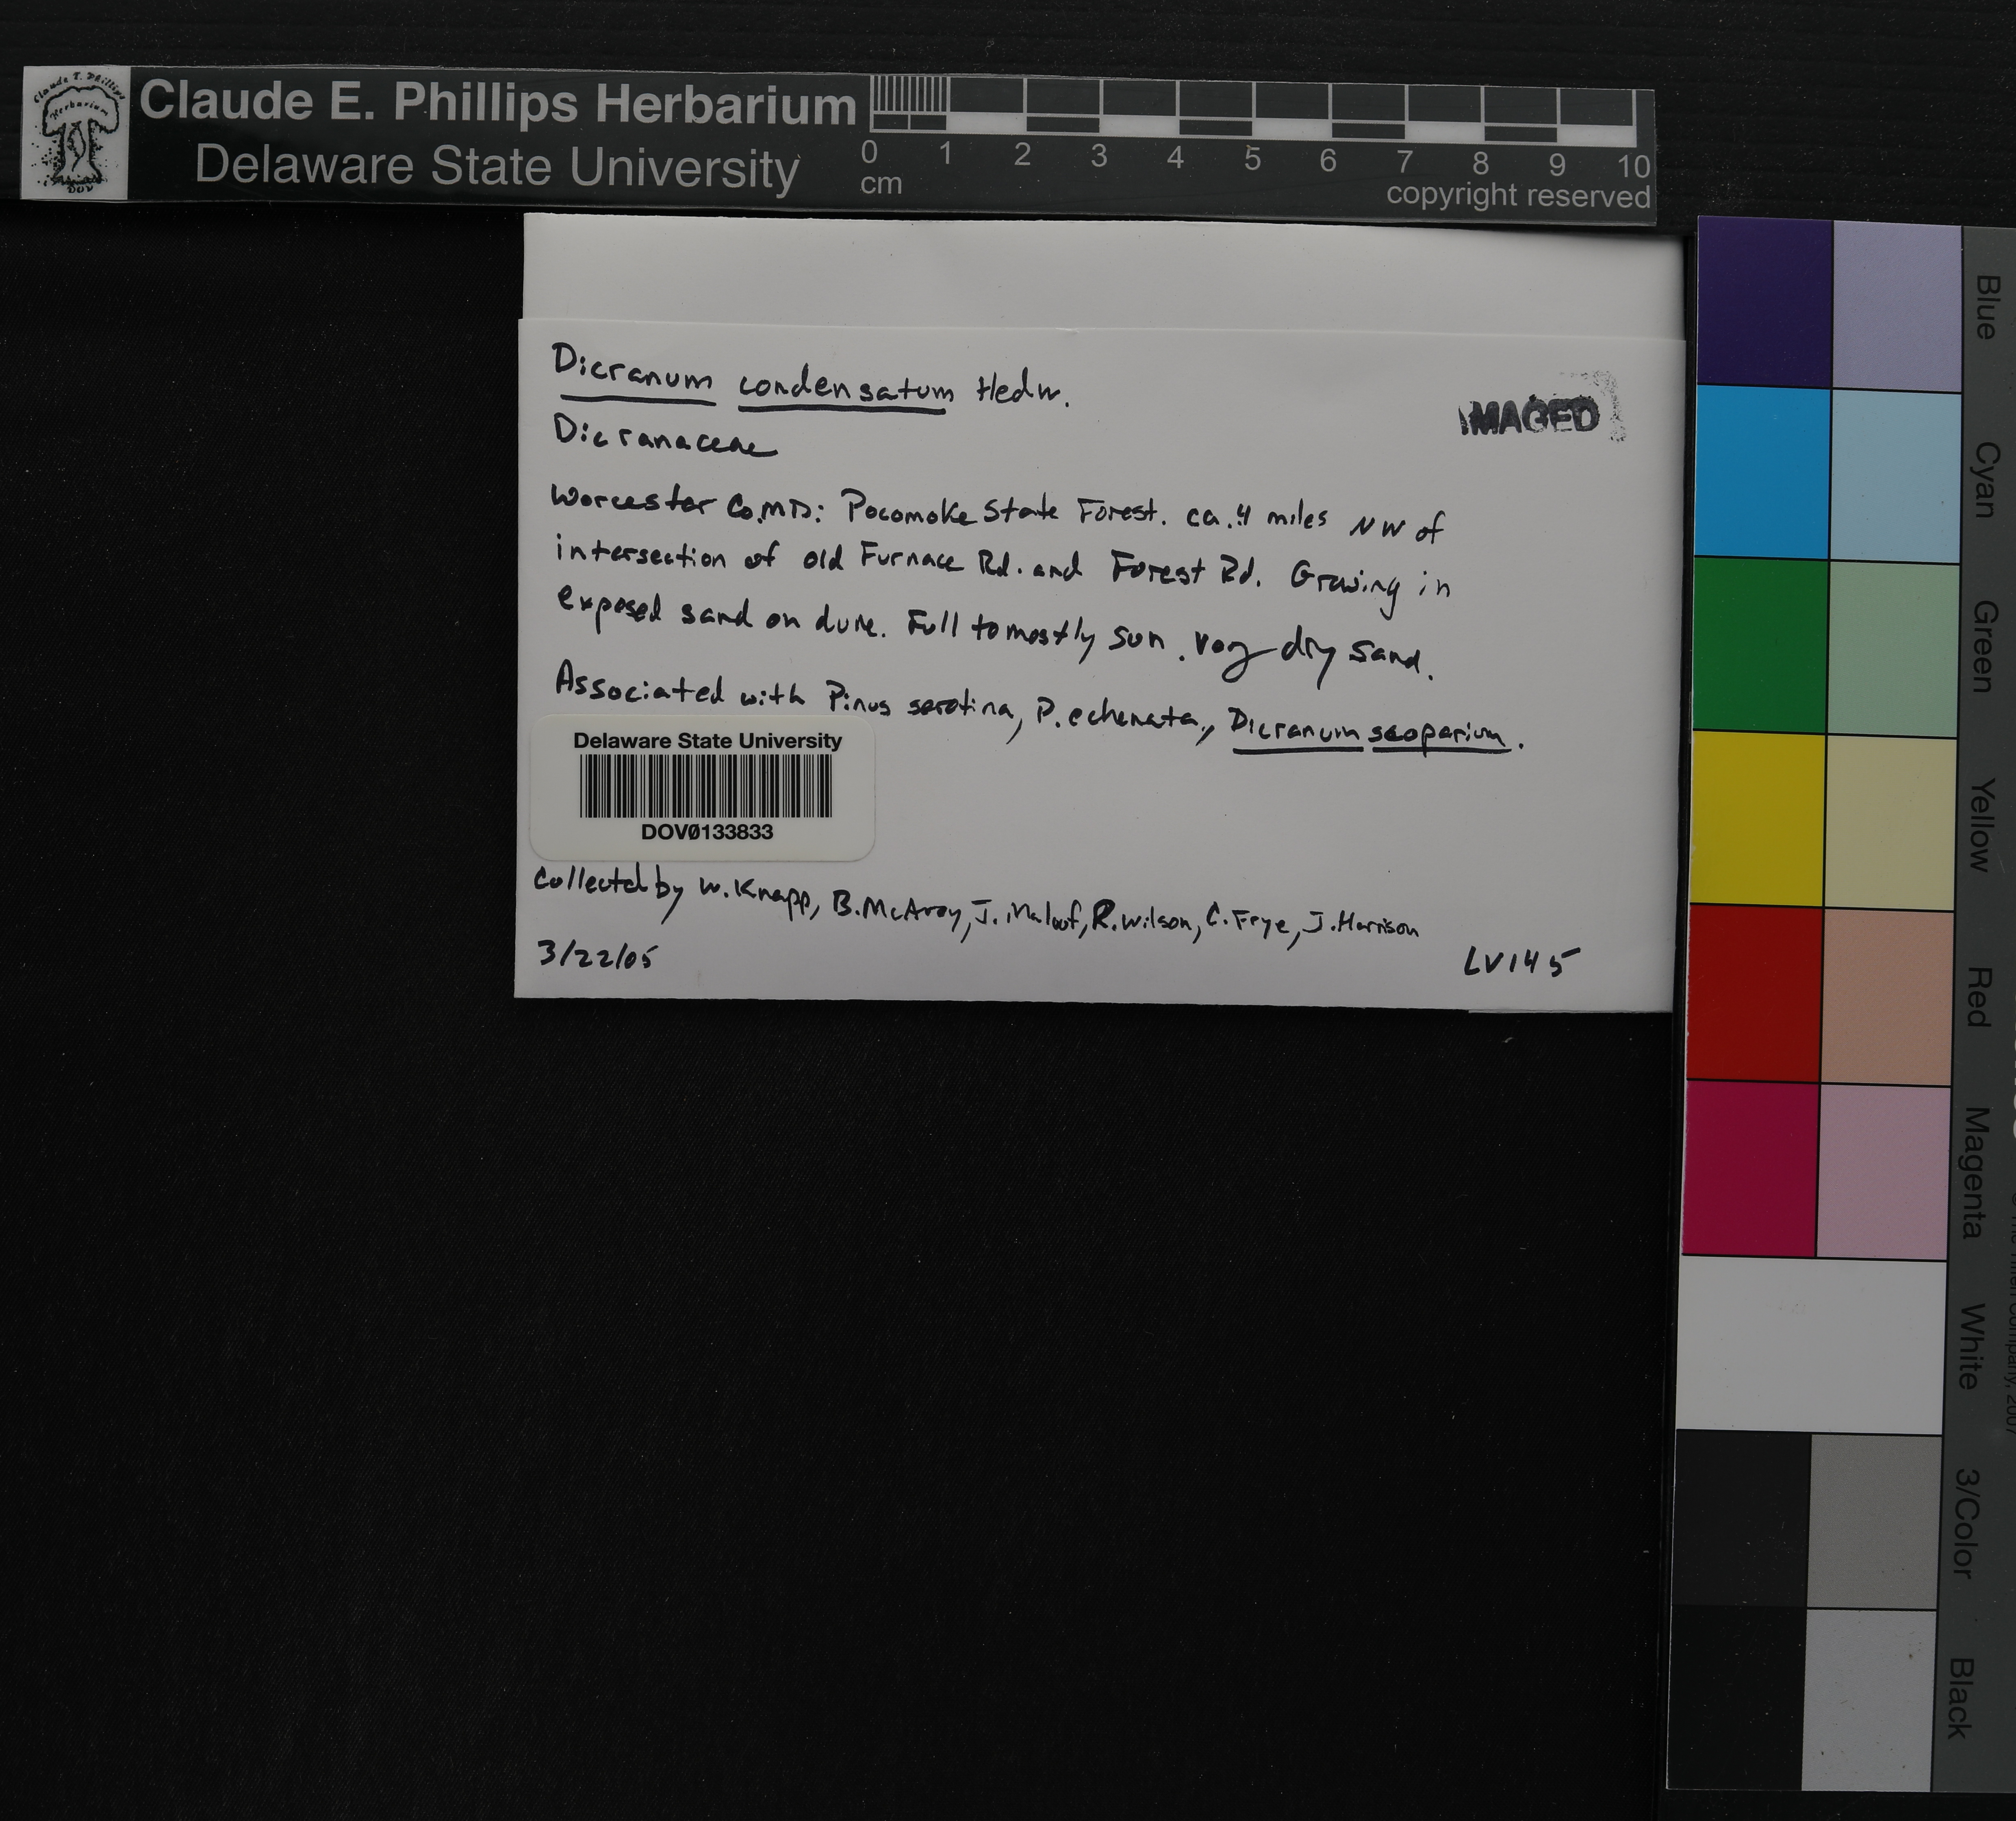 Claude E. Phillips Herbarium
Delaware State University
0 1 2 3 4 5 6 7 8 9 10
cm
copyright reserved
Dicranum condensatum Hedw.
IMAGED
Dicranaceae
Worcester Co. MD: Pocomoke State Forest. ca. 4 miles NW of
intersection of old Furnace Rd. and Forest Rd. Growing in
exposed sand on dune. Full to mostly sun. very dry sand.
Associated with Pinus serotina, P. echenata, Dicranum scoparium.
Delaware State University
DOV0133833
Collected by W. Knapp, B. McAvoy, J. Maloof, R. Wilson, C. Frye, J. Harrison
3/22/05
LV145
Blue
Cyan
Green
Yellow
Red
Magenta
White
3/Color
Black